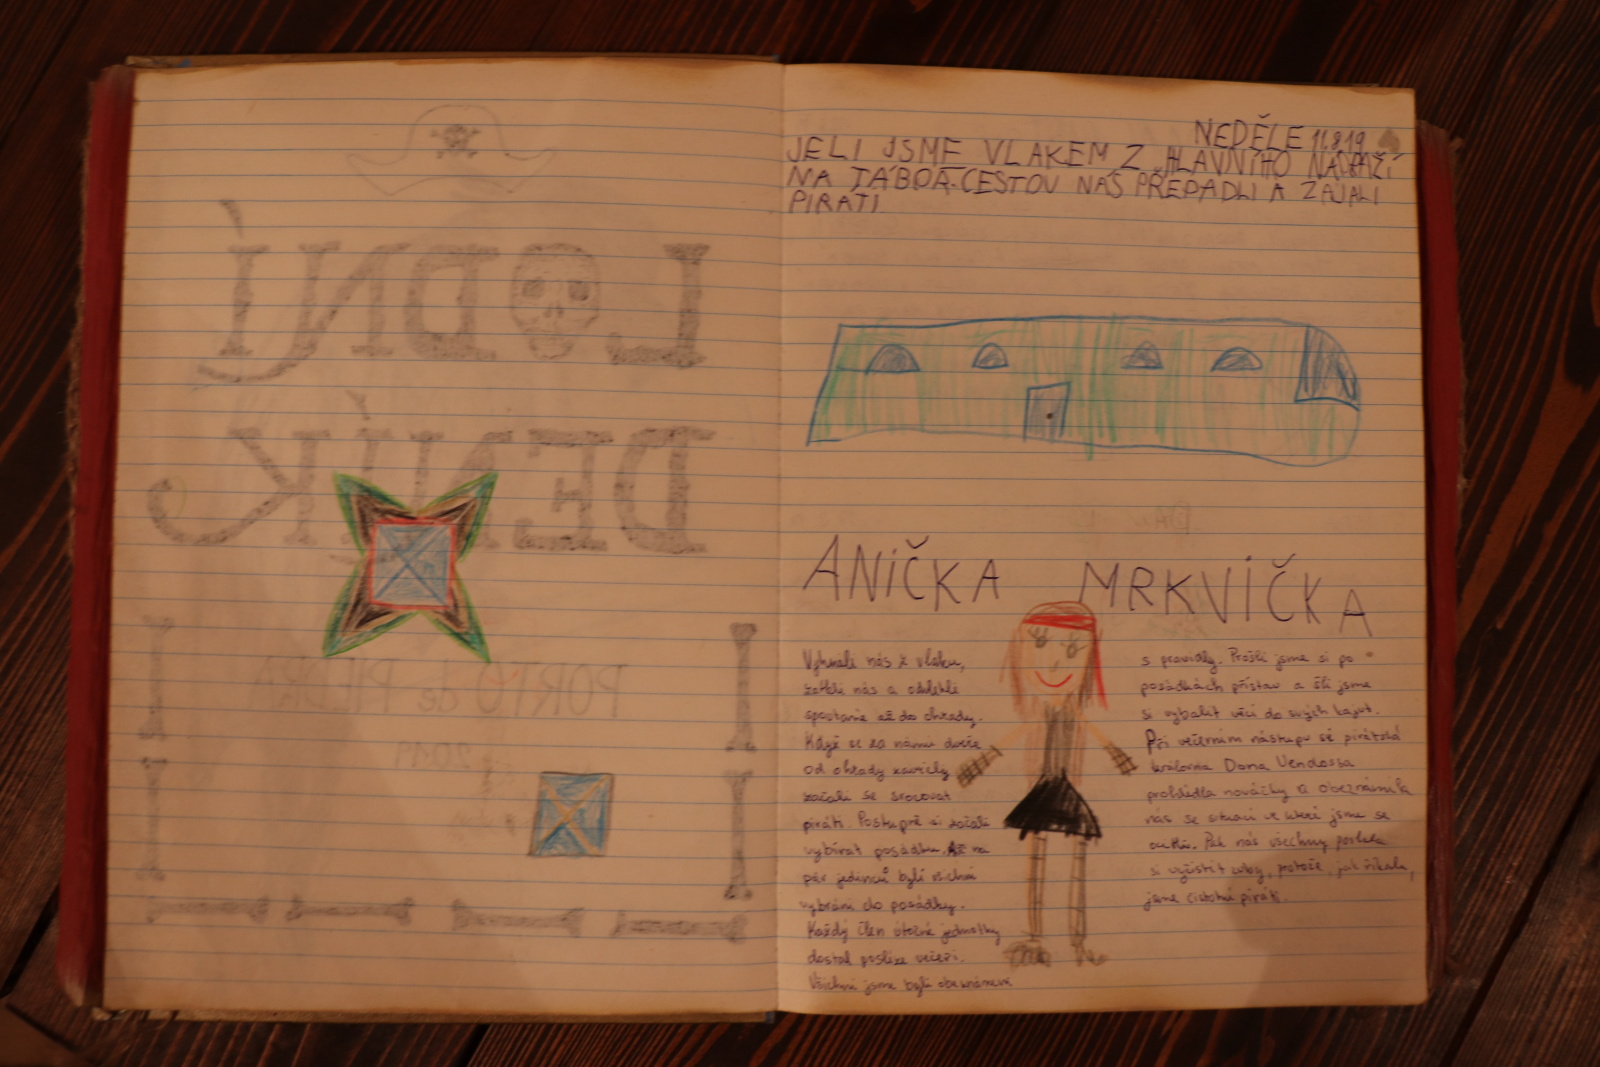 LODNÍ
DENÍK
PORTO de PIEDRA
2019
NEDĚLE 11.8.19
JELI JSME VLAKEM Z HLAVNÍHO NÁDRAŽÍ
NA TÁBOR. CESTOU NÁS PŘEPADLI A ZAJALI
PIRÁTI
ANIČKA MRKVIČKA
Vyhnali nás z vlaku,
nás a odvlekli
spoutané až do ohrady.
Když se za námi dveře
od ohrady zavřely
začali se srocovat
piráti. Postupně si začali
vybírat posádku. Až na
pár jedinců byli všichni
vybráni do posádky.
Každý člen útočné jednotky
dostal posléze večeři.
Všichni jsme byli obeznámeni
s pravidly. Prošli jsme si po
posádkách přístav a šli jsme
si vybalit věci do svých kajut.
Při večerním nástupu si pirátská
královna Dona Vendossa
prohlídla nováčky a obeznámila
nás se situací ve které jsme se
octli. Pak nás všechny poslala
si vyčistit zuby, protože, jak říkala,
jsme čistotní piráti.